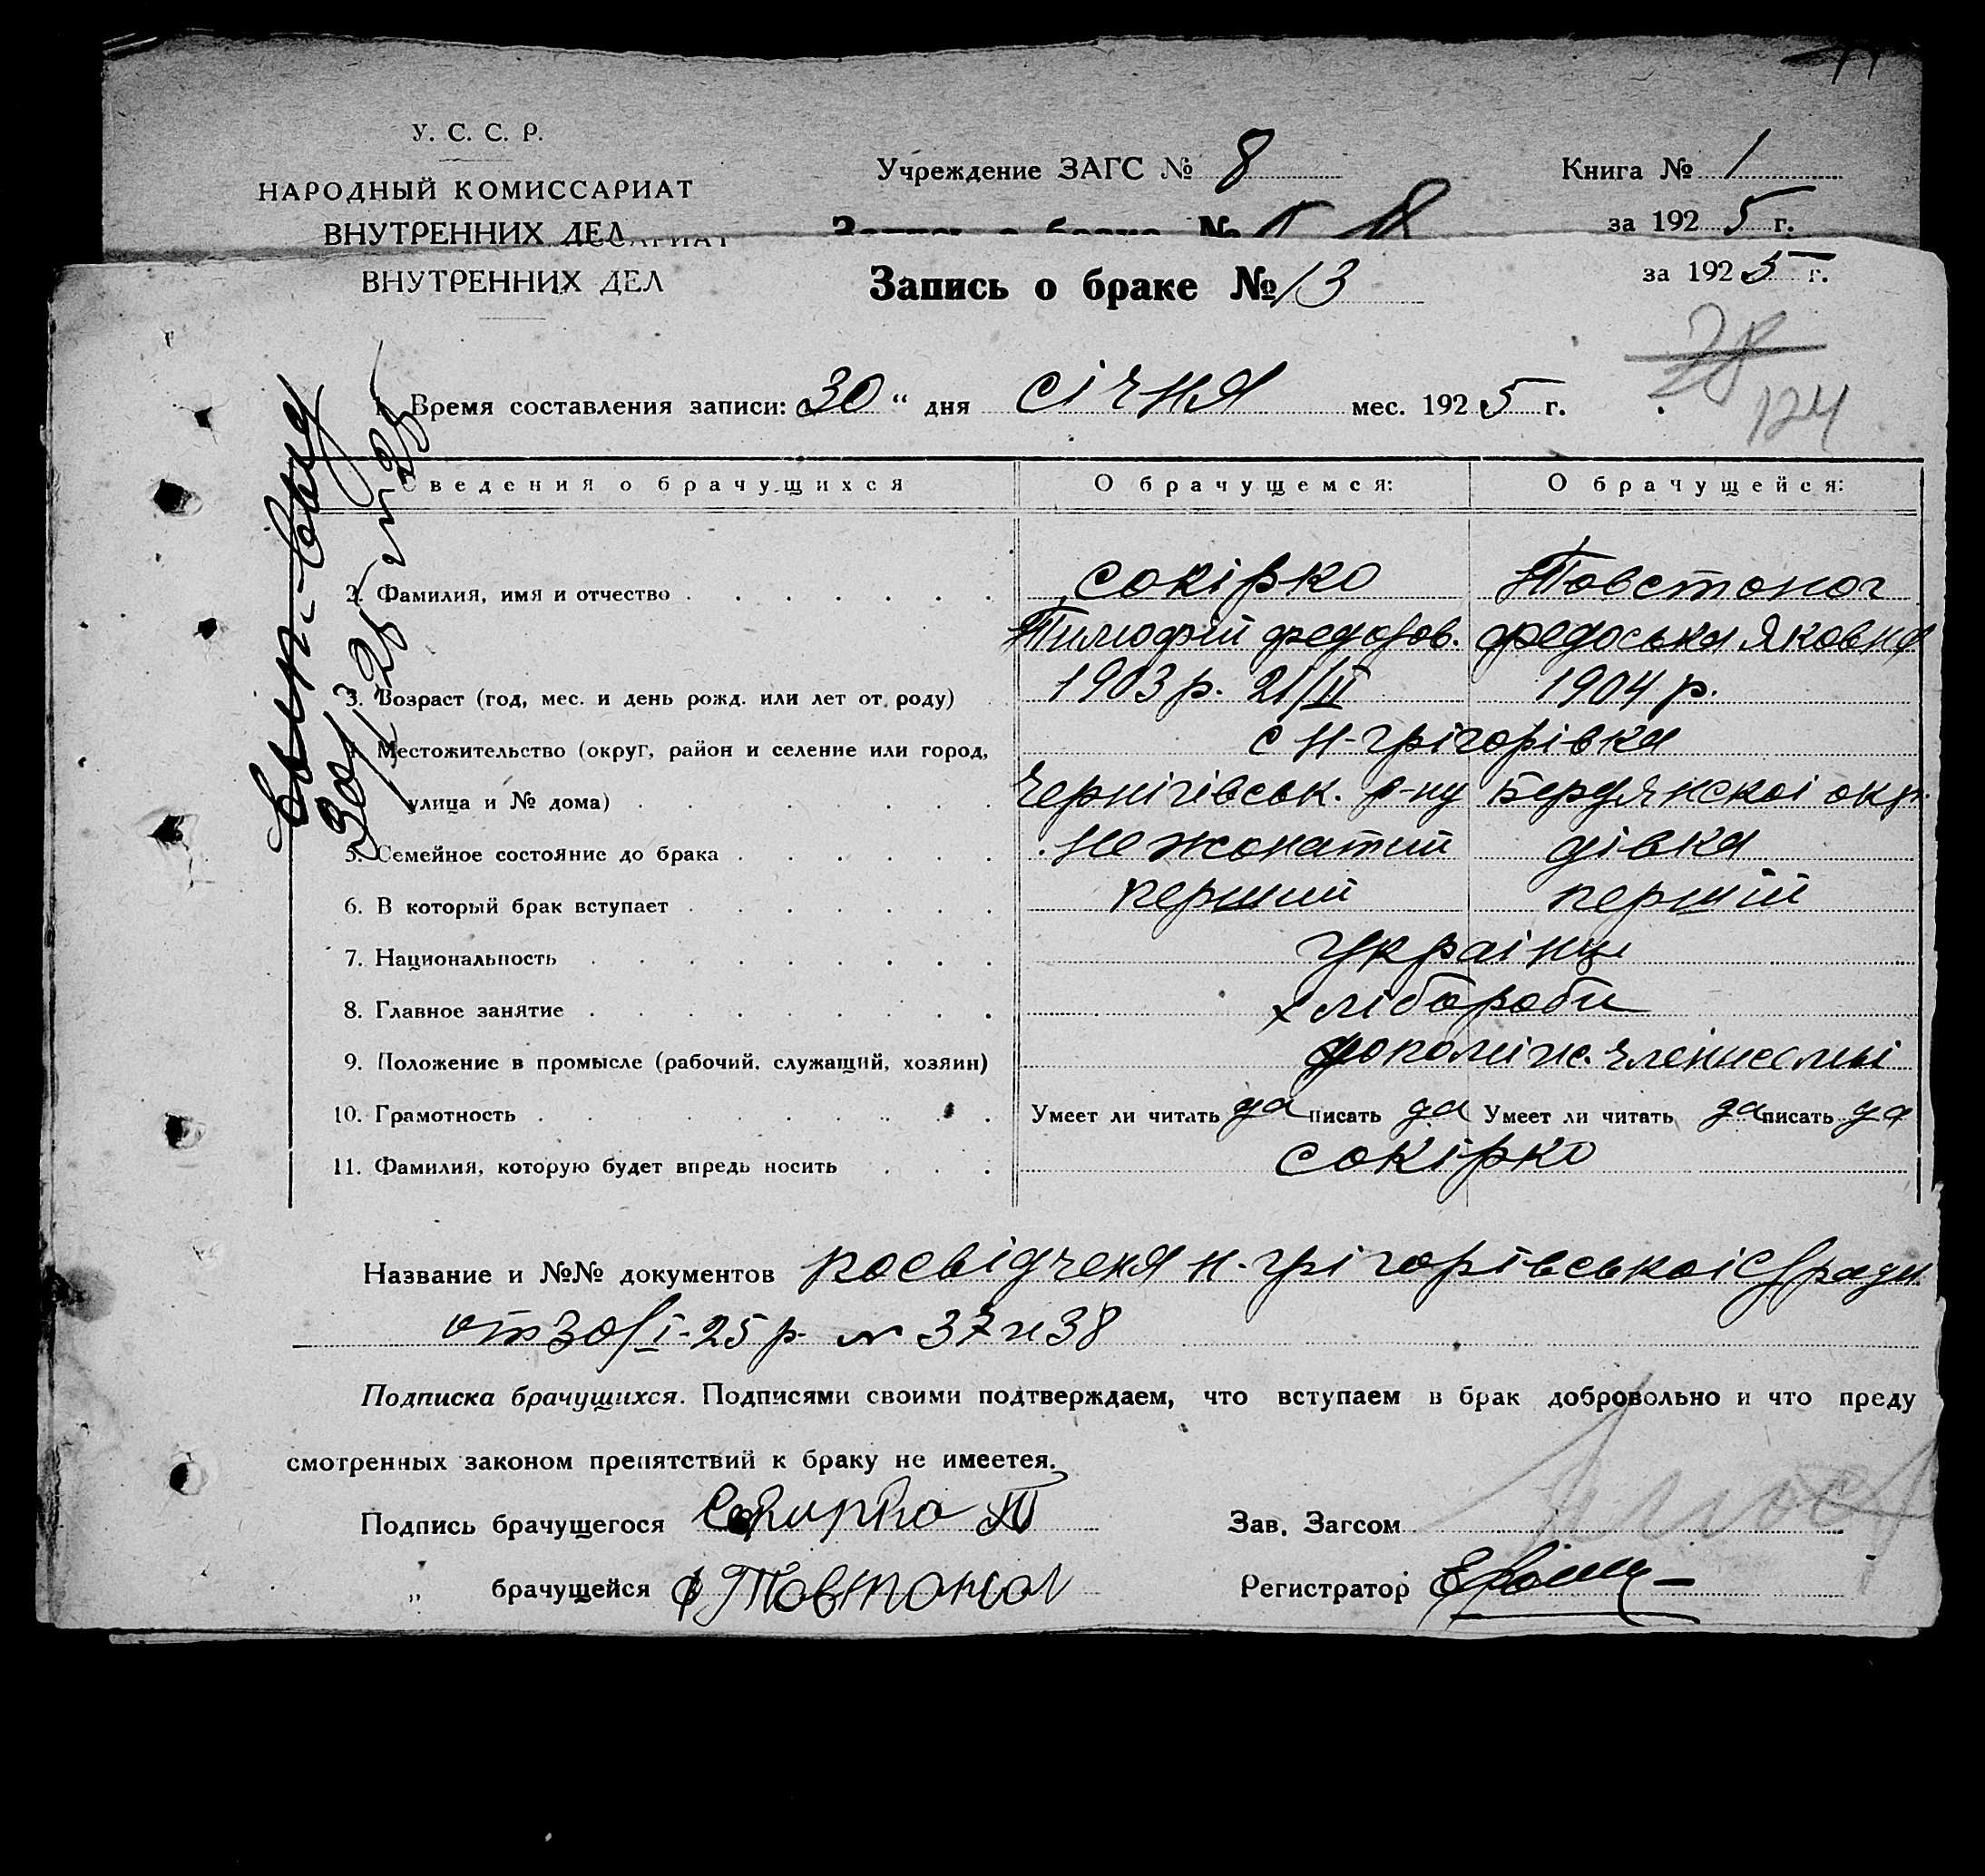 У. С. С. Р.
НАРОДНЫЙ КОМИССАРИАТ
ВНУТРЕННИХ ДЕЛ
Учреждение ЗАГС № 8
Книга № 1
за 1925 г.
ВНУТРЕННИХ ДЕЛ
Запись о браке № 13
за 1925 г.
28
124
1. Время составления записи: 30 " дня січня мес. 1925 г.
Сведения о брачущихся О брачущемся: О брачущейся:
2. Фамилия, имя и отчество Сокірко Товстоног
Тимофій Федоров. Федоська Яковна
3. Возраст (год, мес. и день рожд. или лет от роду) 1903 р. 21/II 1904 р.
4. Местожительство (округ, район и селение или город, с Н-Грігорівка
улица и № дома) Чернігівськ. р-ну Бердянскоі окр.
5. Семейное состояние до брака Не жонатий дівка
6. В который брак вступает перший перший
7. Национальность украінці
8. Главное занятие хлібороби
9. Положение в промысле (рабочий, служащий, хозяин)
10. Грамотность Умеет ли читать да писать да Умеет ли читать да писать да
11. Фамилия, которую будет впредь носить Сокірко
Название и №№ документов посвідченя Н-Грігорівськоі С/ради
от 30/I-25 р. № 37 и 38
Подписка брачущихся. Подписями своими подтверждаем, что вступаем в брак добровольно и что преду
смотренных законом препятствий к браку не имеется.
Подпись брачущегося Сокирко Т
Зав. Загсом
" брачущейся Ф Товстоног
Регистратор